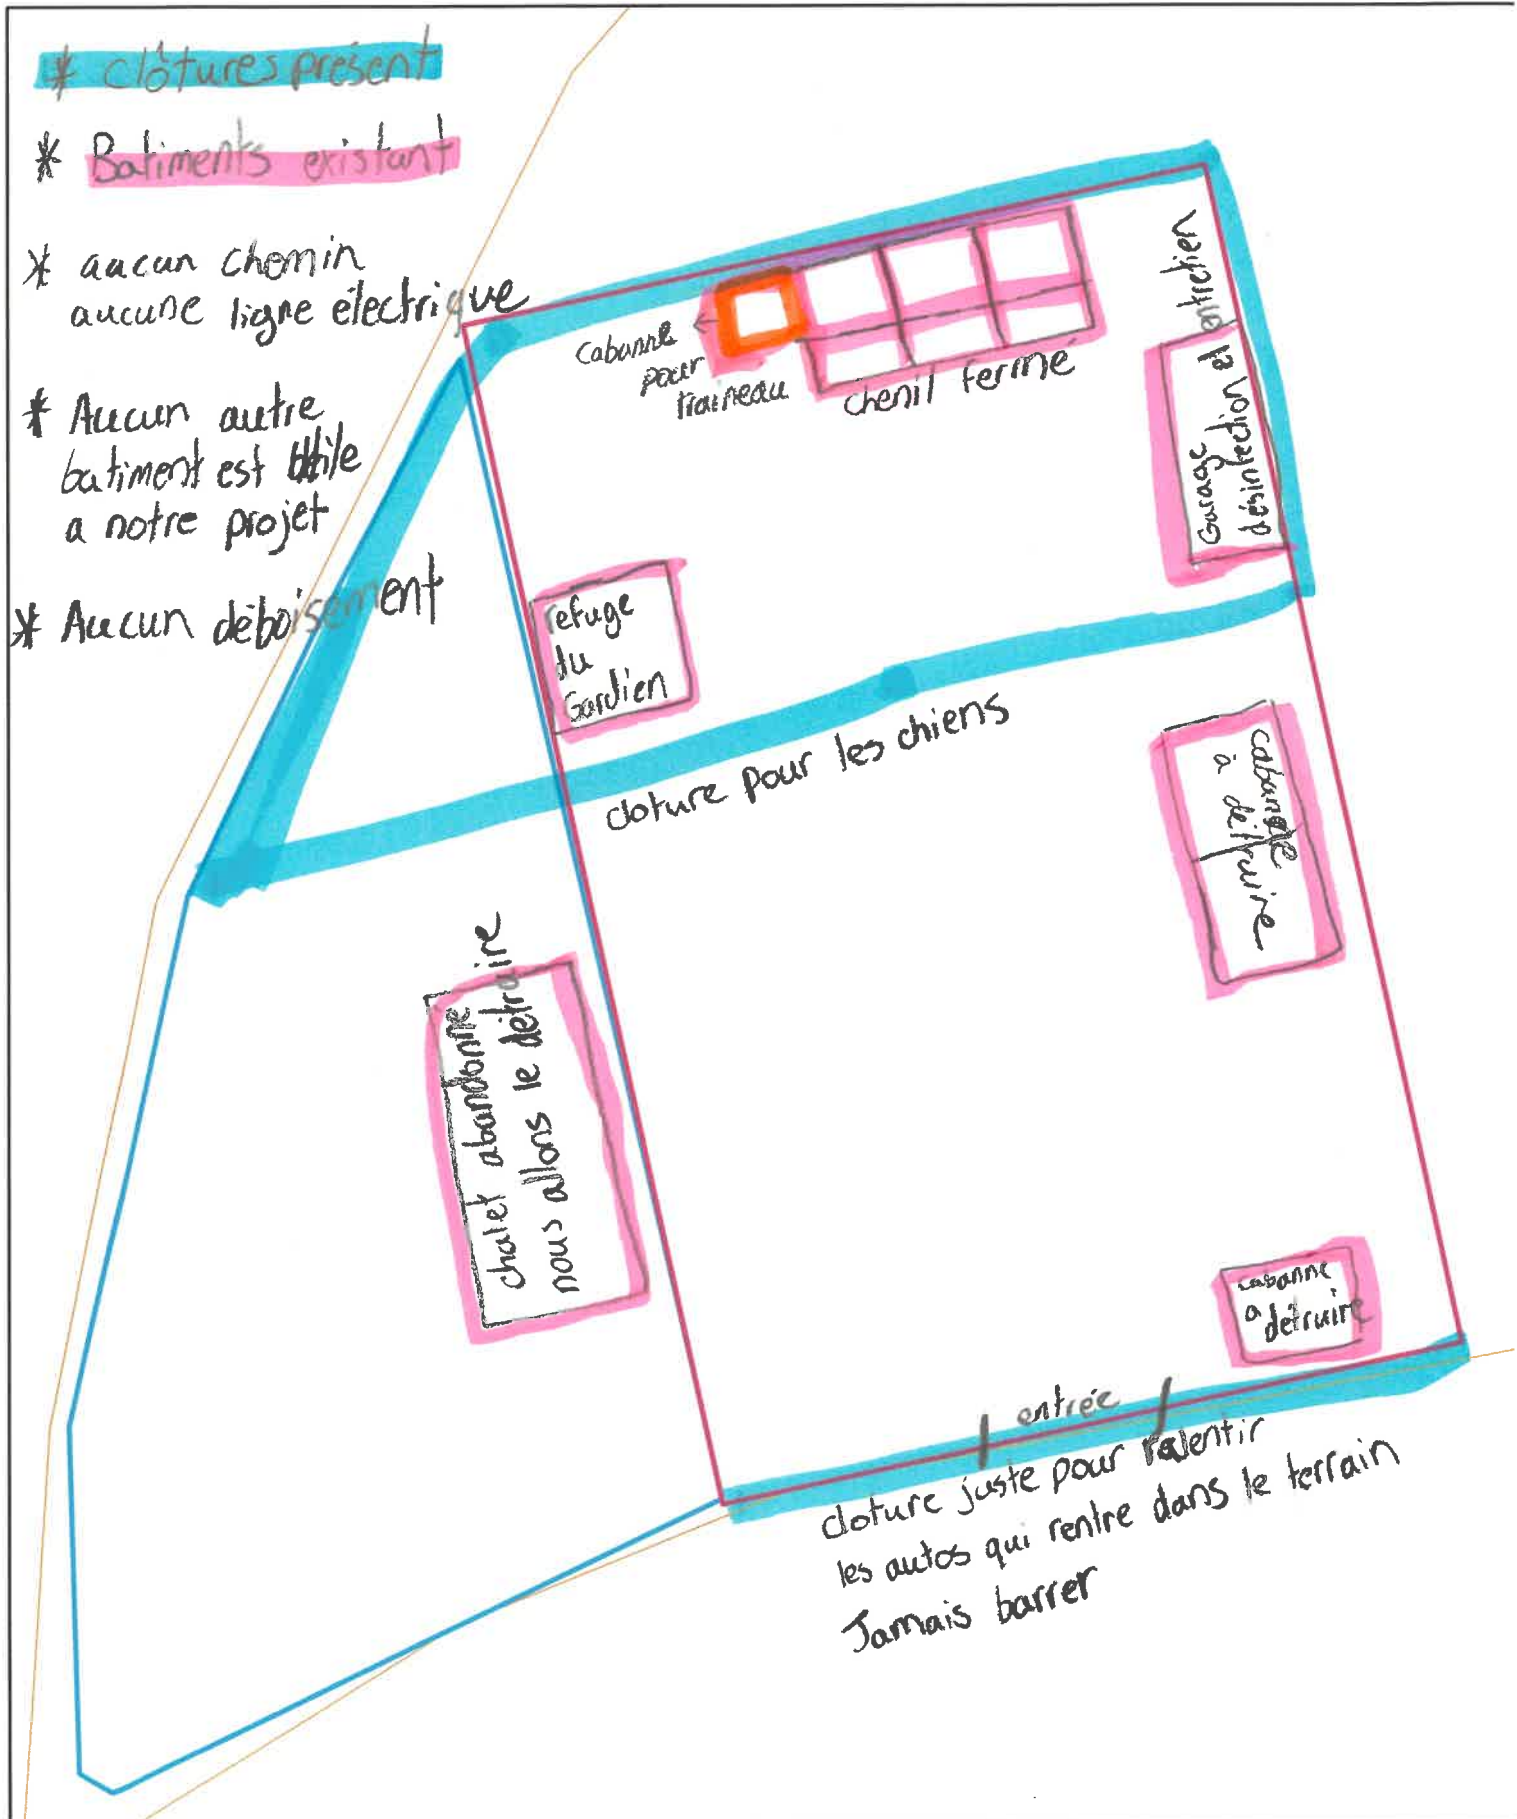 * clôtures présent
* Batiments existant
* aucun chemin
aucune ligne électrique
* Aucun autre
batiment est utile
a notre projet
* Aucun déboisement
Cabanne
pour
traineau
chenil fermé
Garage
désinfection et entretien
refuge
du
Gardien
cloture pour les chiens
cabanne
à détruire
chalet abandonné
nous allons le détruire
cabanne
a détruire
entrée
cloture juste pour ralentir
les autos qui rentre dans le terrain
Jamais barrer